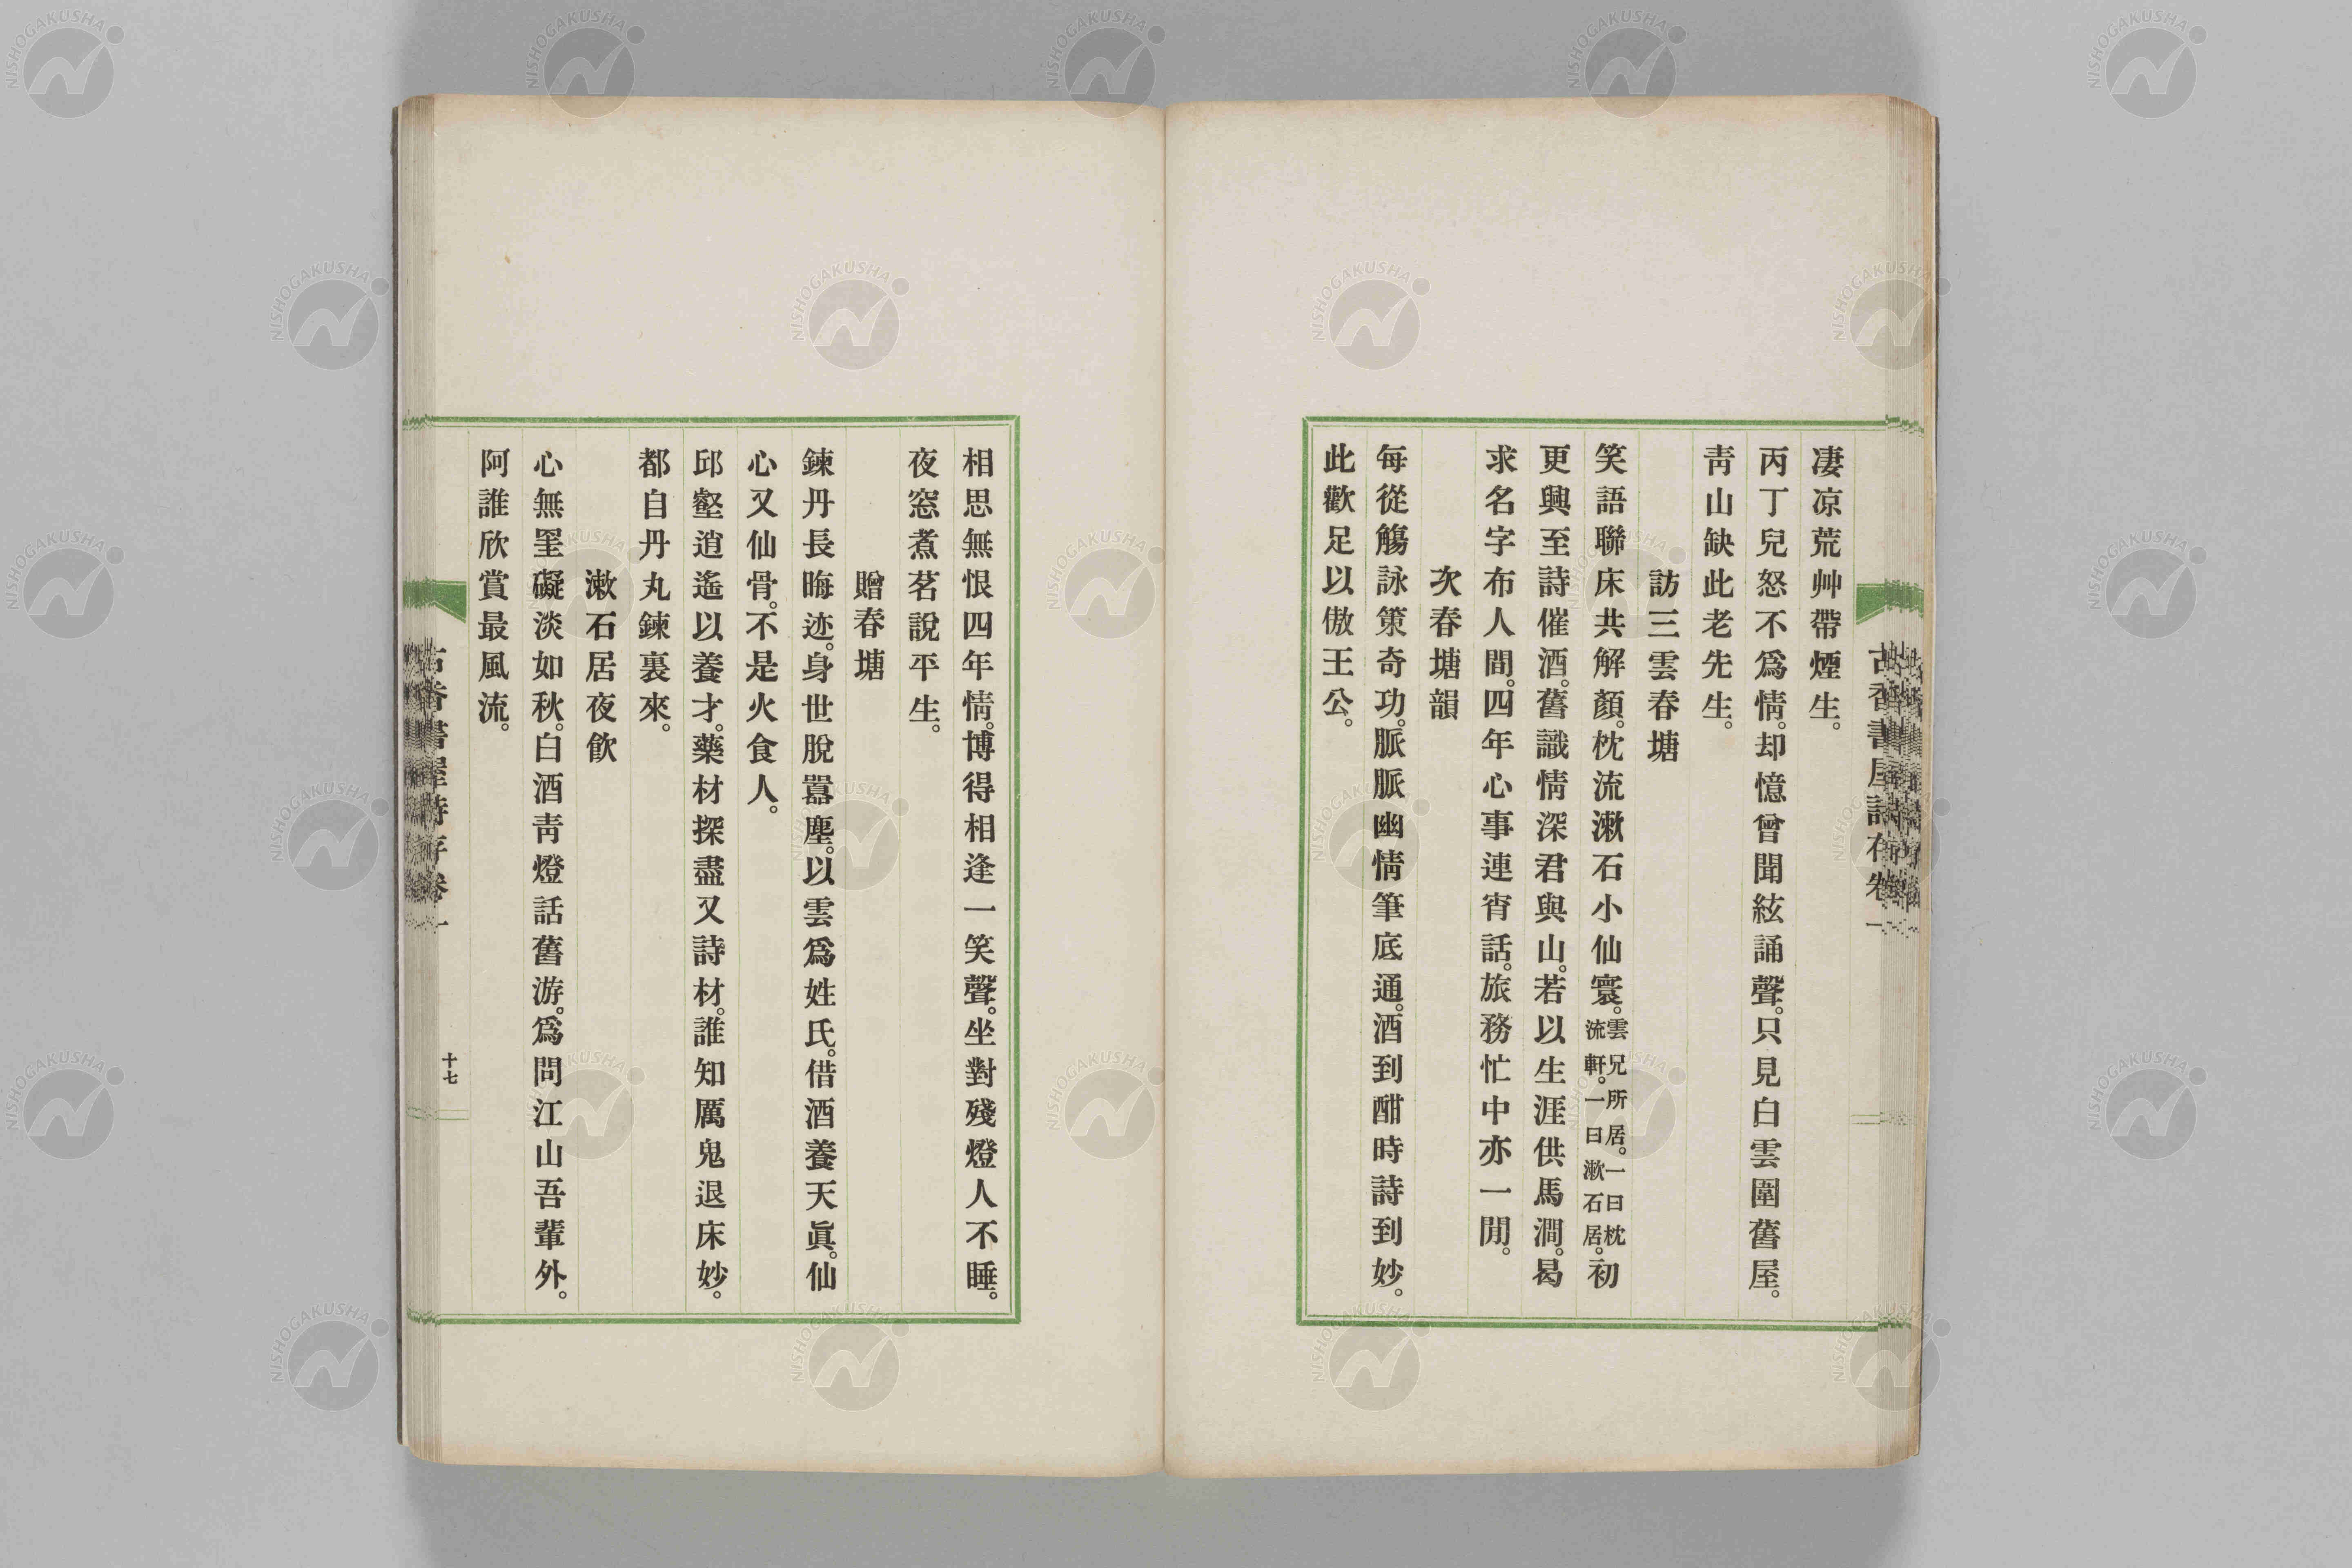 凄凉荒艸帶煙生。
丙丁兒怒不爲情。却憶曾聞絃誦聲。只見白雲圍舊屋。
靑山缺此老先生。
訪三雲春塘
笑語聯床共解顏。枕流漱石小仙寰。雲兄所居。一曰枕流軒。一曰漱石居。初
更興至詩催酒。舊識情深君與山。若以生涯供馬澗。曷
求名字布人間。四年心事連宵話。旅務忙中亦一閒。
次春塘韻
每從觴詠策奇功。脈脈幽情筆底通。酒到酣時詩到妙。
此歡足以傲王公。
相思無恨四年情。博得相逢一笑聲。坐對殘燈人不睡。
夜窓煮茗說平生。
贈春塘
鍊丹長晦迹。身世脫囂塵。以雲爲姓氏。借酒養天眞。仙
心又仙骨。不是火食人。
邱壑逍遙以養才。藥材探盡又詩材。誰知厲鬼退床妙。
都自丹丸鍊裏來。
漱石居夜飮
心無罣礙淡如秋。白酒靑燈話舊游。爲問江山吾輩外。
阿誰欣賞最風流。
古香書屋詩存卷一
十七
NISHOGAKUSHA